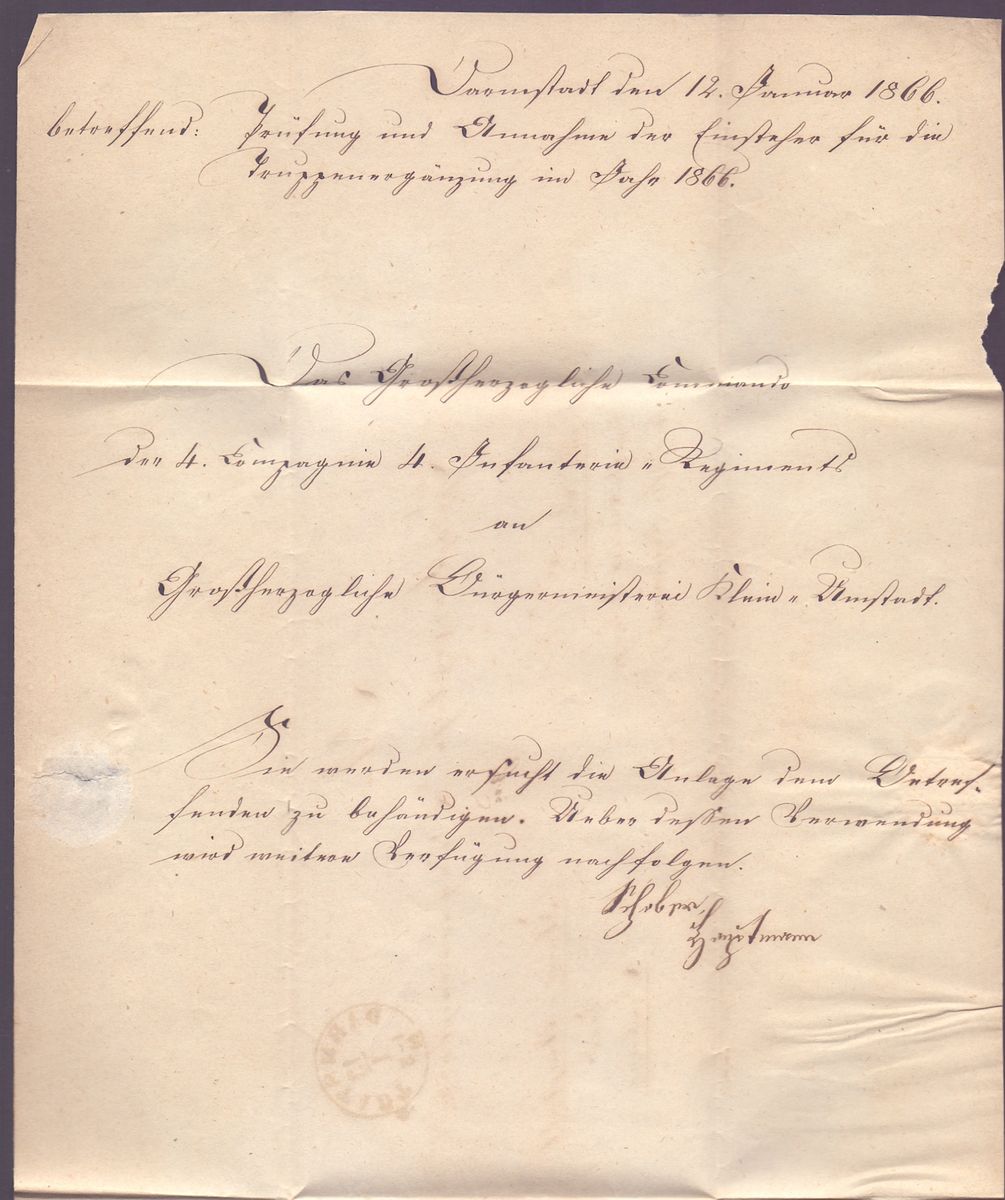 Darmstadt den 12. Januar 1866.
betreffend: Prüfung und Annahme der Einsteher für die
Truppenergänzung im Jahr 1866.
Das Großherzogliche Commando
der 4. Compagnie 4. Infanterie-Regiments
an
Großherzogliche Bürgermeisterei Klein-Umstadt.
Sie werden ersucht die Anlage dem Betref-
fenden zu behändigen. Ueber dessen Verwendung
wird weitere Verfügung nachfolgen.
Schober,
Hauptmann